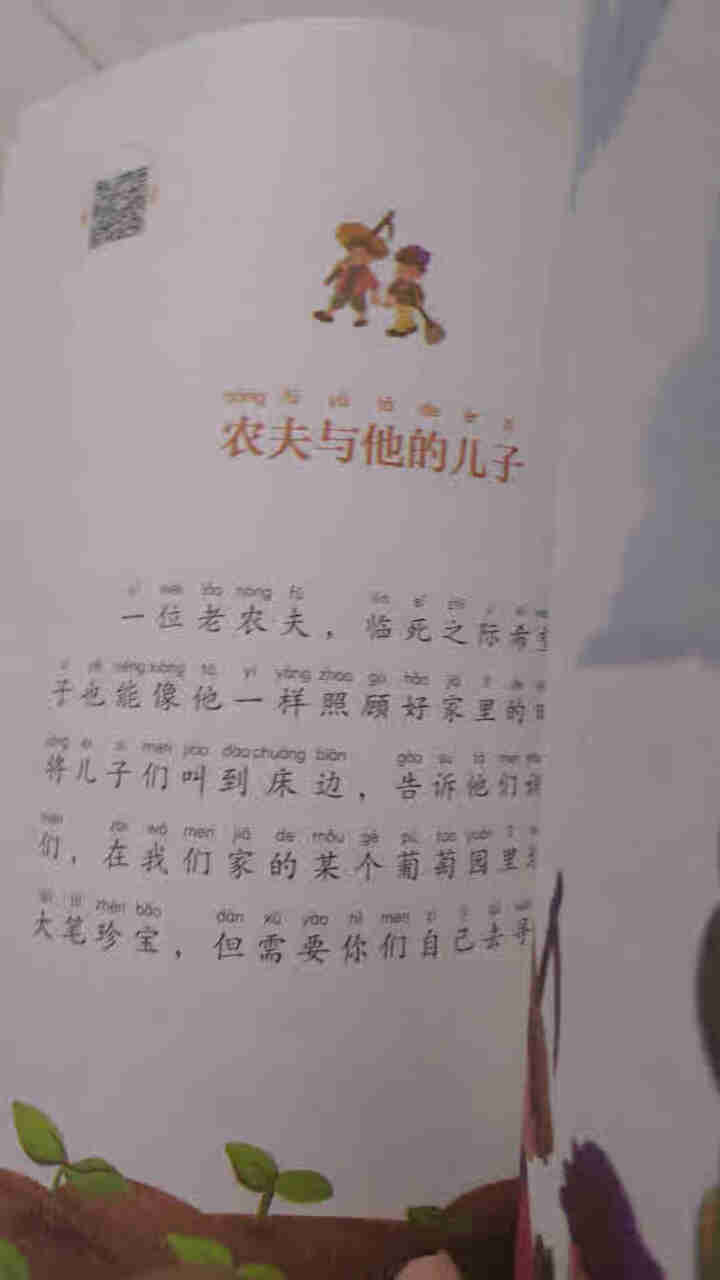 nóng fū yǔ tā de ér zi
农夫与他的儿子
yí wèi lǎo nóng fū lín sǐ zhī jì
一位老农夫，临死之际希
yě néng xiàng tā yí yàng zhào gù hǎo jiā lǐ de
子也能像他一样照顾好家里的
jiāng ér zi men jiào dào chuáng biān gào su tā men
将儿子们叫到床边，告诉他们
zài wǒ men jiā de mǒu gè pú tao yuán lǐ
们，在我们家的某个葡萄园里
dà bǐ zhēn bǎo dàn xū yào nǐ men zì jǐ qù
大笔珍宝，但需要你们自己去寻